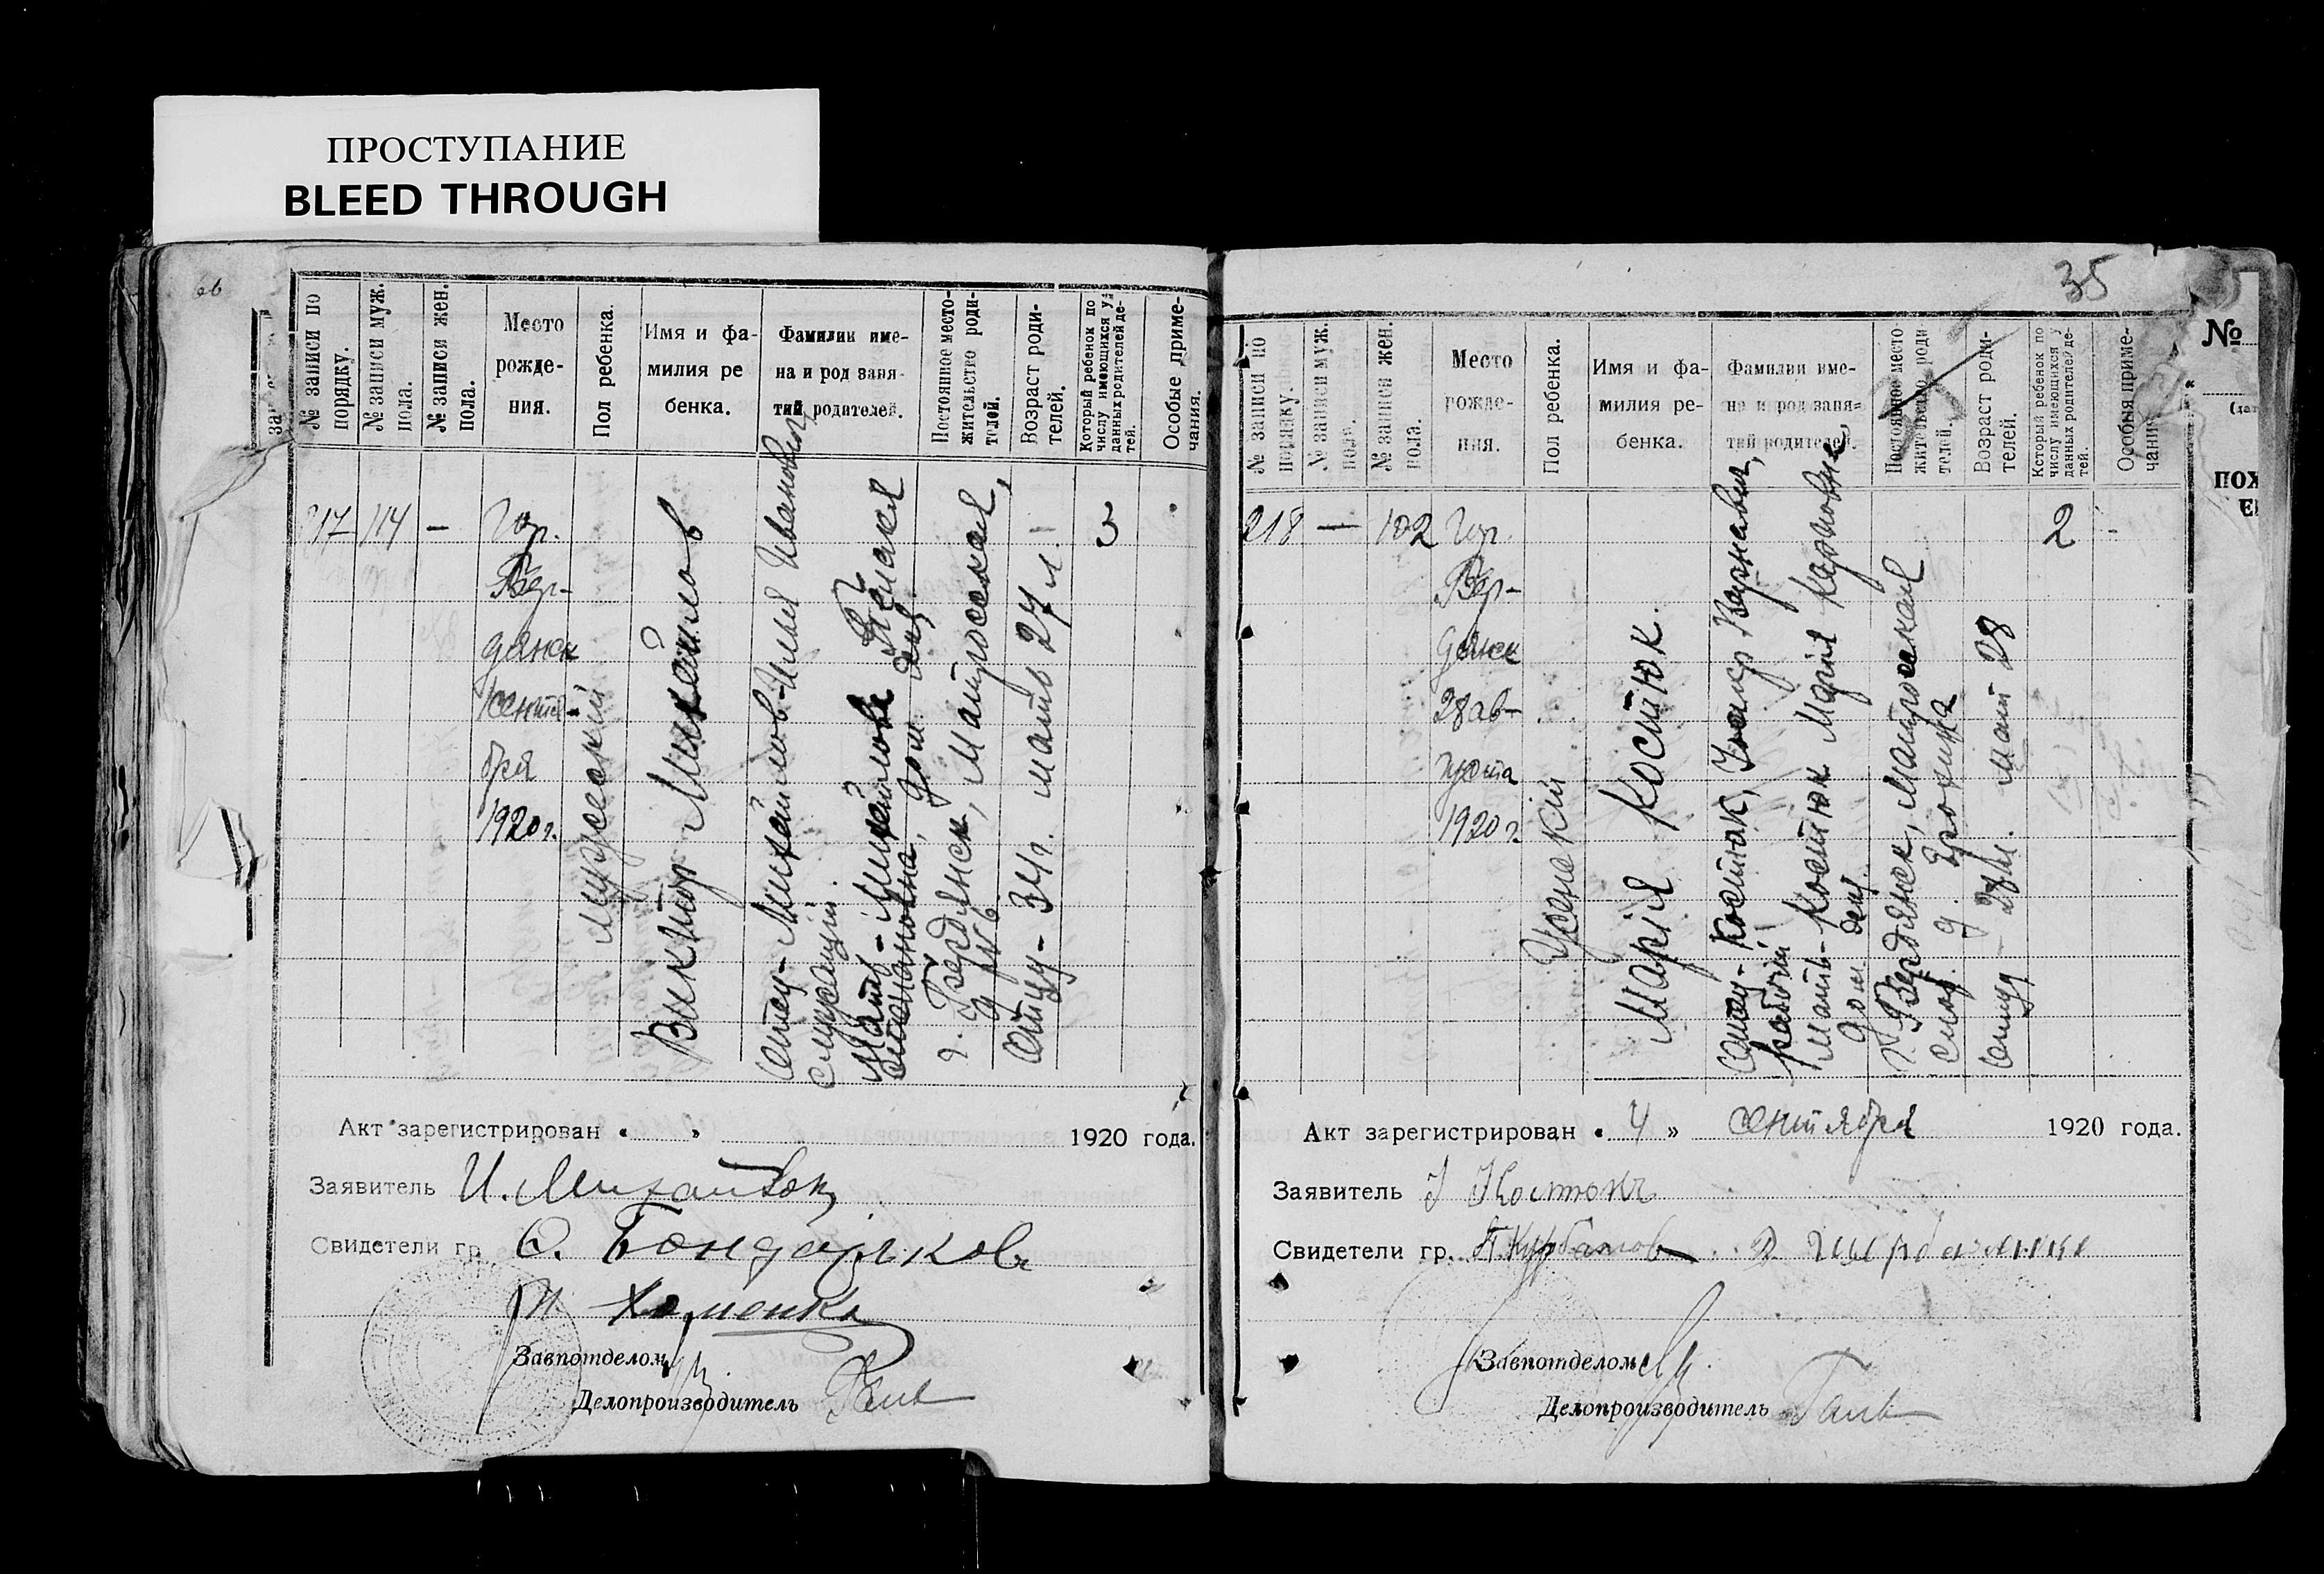 ПРОСТУПАНИЕ
BLEED THROUGH
№ записи по порядку.
№ записи муж. пола.
№ записи жен. пола.
Место рожде-
ния.
Пол ребенка.
Имя и фа-
милия ре
бенка.
Фамилии име-
на и род заня-
тий родителей.
Постоянное место-
жительство роди-
телей.
Возраст роди-
телей.
Который ребенок по
числу имеющихся у
данных родителей де-
тей.
Особые приме-
чания.
217
114
—
Гор.
Бер-
дянск
1 сентя-
бря
1920 г.
мужеский
Виктор Михайлов
Отец - Михайлов Илья Иванович,
служащий.
Мать - Михайлова
дом.
г. Бердянск, Матросская,
Отцу - 34 г. мать 27 л.
3
Акт зарегистрирован « » 1920 года.
Заявитель И. Михайлов
Свидетели гр. С. Бондарьков
И Хоменко
Завпотделом
Делопроизводитель
35
№ записи по
порядку.
№ записи муж.
пола.
№ записи жен.
пола.
Место
рожде-
ния.
Пол ребенка.
Имя и фа-
милия ре-
бенка.
Фамилии име-
на и род заня=
тий родителей.
Постоянное место
жительство роди
телей.
Возраст роди-
телей.
Который ребенок по
числу имеющихся у
данных родителей де-
тей.
Особыя приме-
чания
218
—
102
Гор.
Бер-
дянск
28 ав-
густа
1920 г.
Женский
Марія Костюк.
Отец - Костюк,
рабочий
Мать - Костюк Марія Карповна,
дом.
г. Бердянск, Матросская
Отцу - 28 л. мат 28
2
-
Акт зарегистрирован « 4 » сентября 1920 года.
Заявитель І Костюкъ
Свидетели гр. П. Курбатов
Завпотделом
Делопроизводитель
№